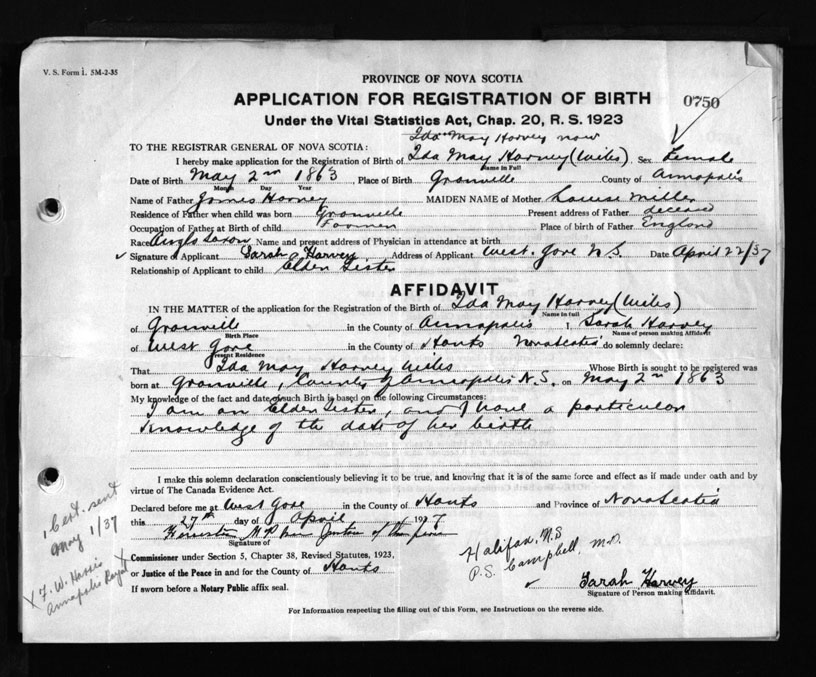 V. S. Form 1. 5M-2-35
PROVINCE OF NOVA SCOTIA
APPLICATION FOR REGISTRATION OF BIRTH
0750
Under the Vital Statistics Act, Chap. 20, R. S. 1923
Ida May Harvey now
TO THE REGISTRAR GENERAL OF NOVA SCOTIA:
I hereby make application for the Registration of Birth of Ida May Harvey (Wiles) Sex Female
Name in Full
Date of Birth May 2nd 1863 Place of Birth Granville County of Annapolis
Month Day Year
Name of Father James Harvey MAIDEN NAME of Mother Louise Miller
Residence of Father when child was born Granville Present address of Father deceased
Occupation of Father at Birth of child Farmer Place of birth of Father England
Race Anglo Saxon Name and present address of Physician in attendance at birth
✓ Signature of Applicant Sarah Harvey Address of Applicant West Gore N S. Date April 22/37
Relationship of Applicant to child Elder Sister
AFFIDAVIT
IN THE MATTER of the application for the Registration of the Birth of Ida May Harvey (Wiles)
Name in full
of Granville in the County of Annapolis I, Sarah Harvey
Birth Place Name of person making Affidavit
of West Gore in the County of Hants Nova Scotia do solemnly declare:
Present Residence
That Ida May Harvey Wiles Whose Birth is sought to be registered was
born at Granville, County of Annapolis N.S. on May 2nd 1863
My knowledge of the fact and date of such Birth is based on the following Circumstances:
I am an Elder Sister, and I have a particular
knowledge of the date of her birth
I make this solemn declaration conscientiously believing it to be true, and knowing that it is of the same force and effect as if made under oath and by
virtue of The Canada Evidence Act.
Declared before me at West Gore in the County of Hants and Province of Nova Scotia
this 27th day of April 1937
Justice of the Peace
Signature of
Commissioner under Section 5, Chapter 38, Revised Statutes, 1923,
or Justice of the Peace in and for the County of Hants
If sworn before a Notary Public affix seal.
Halifax, N.S
P.S. Campbell, M.D.
✓ Sarah Harvey
Signature of Person making Affidavit.
For Information respecting the filling out of this Form, see Instructions on the reverse side.
1 Cert. sent
May 1/37
X F. W. Harris
Annapolis Royal